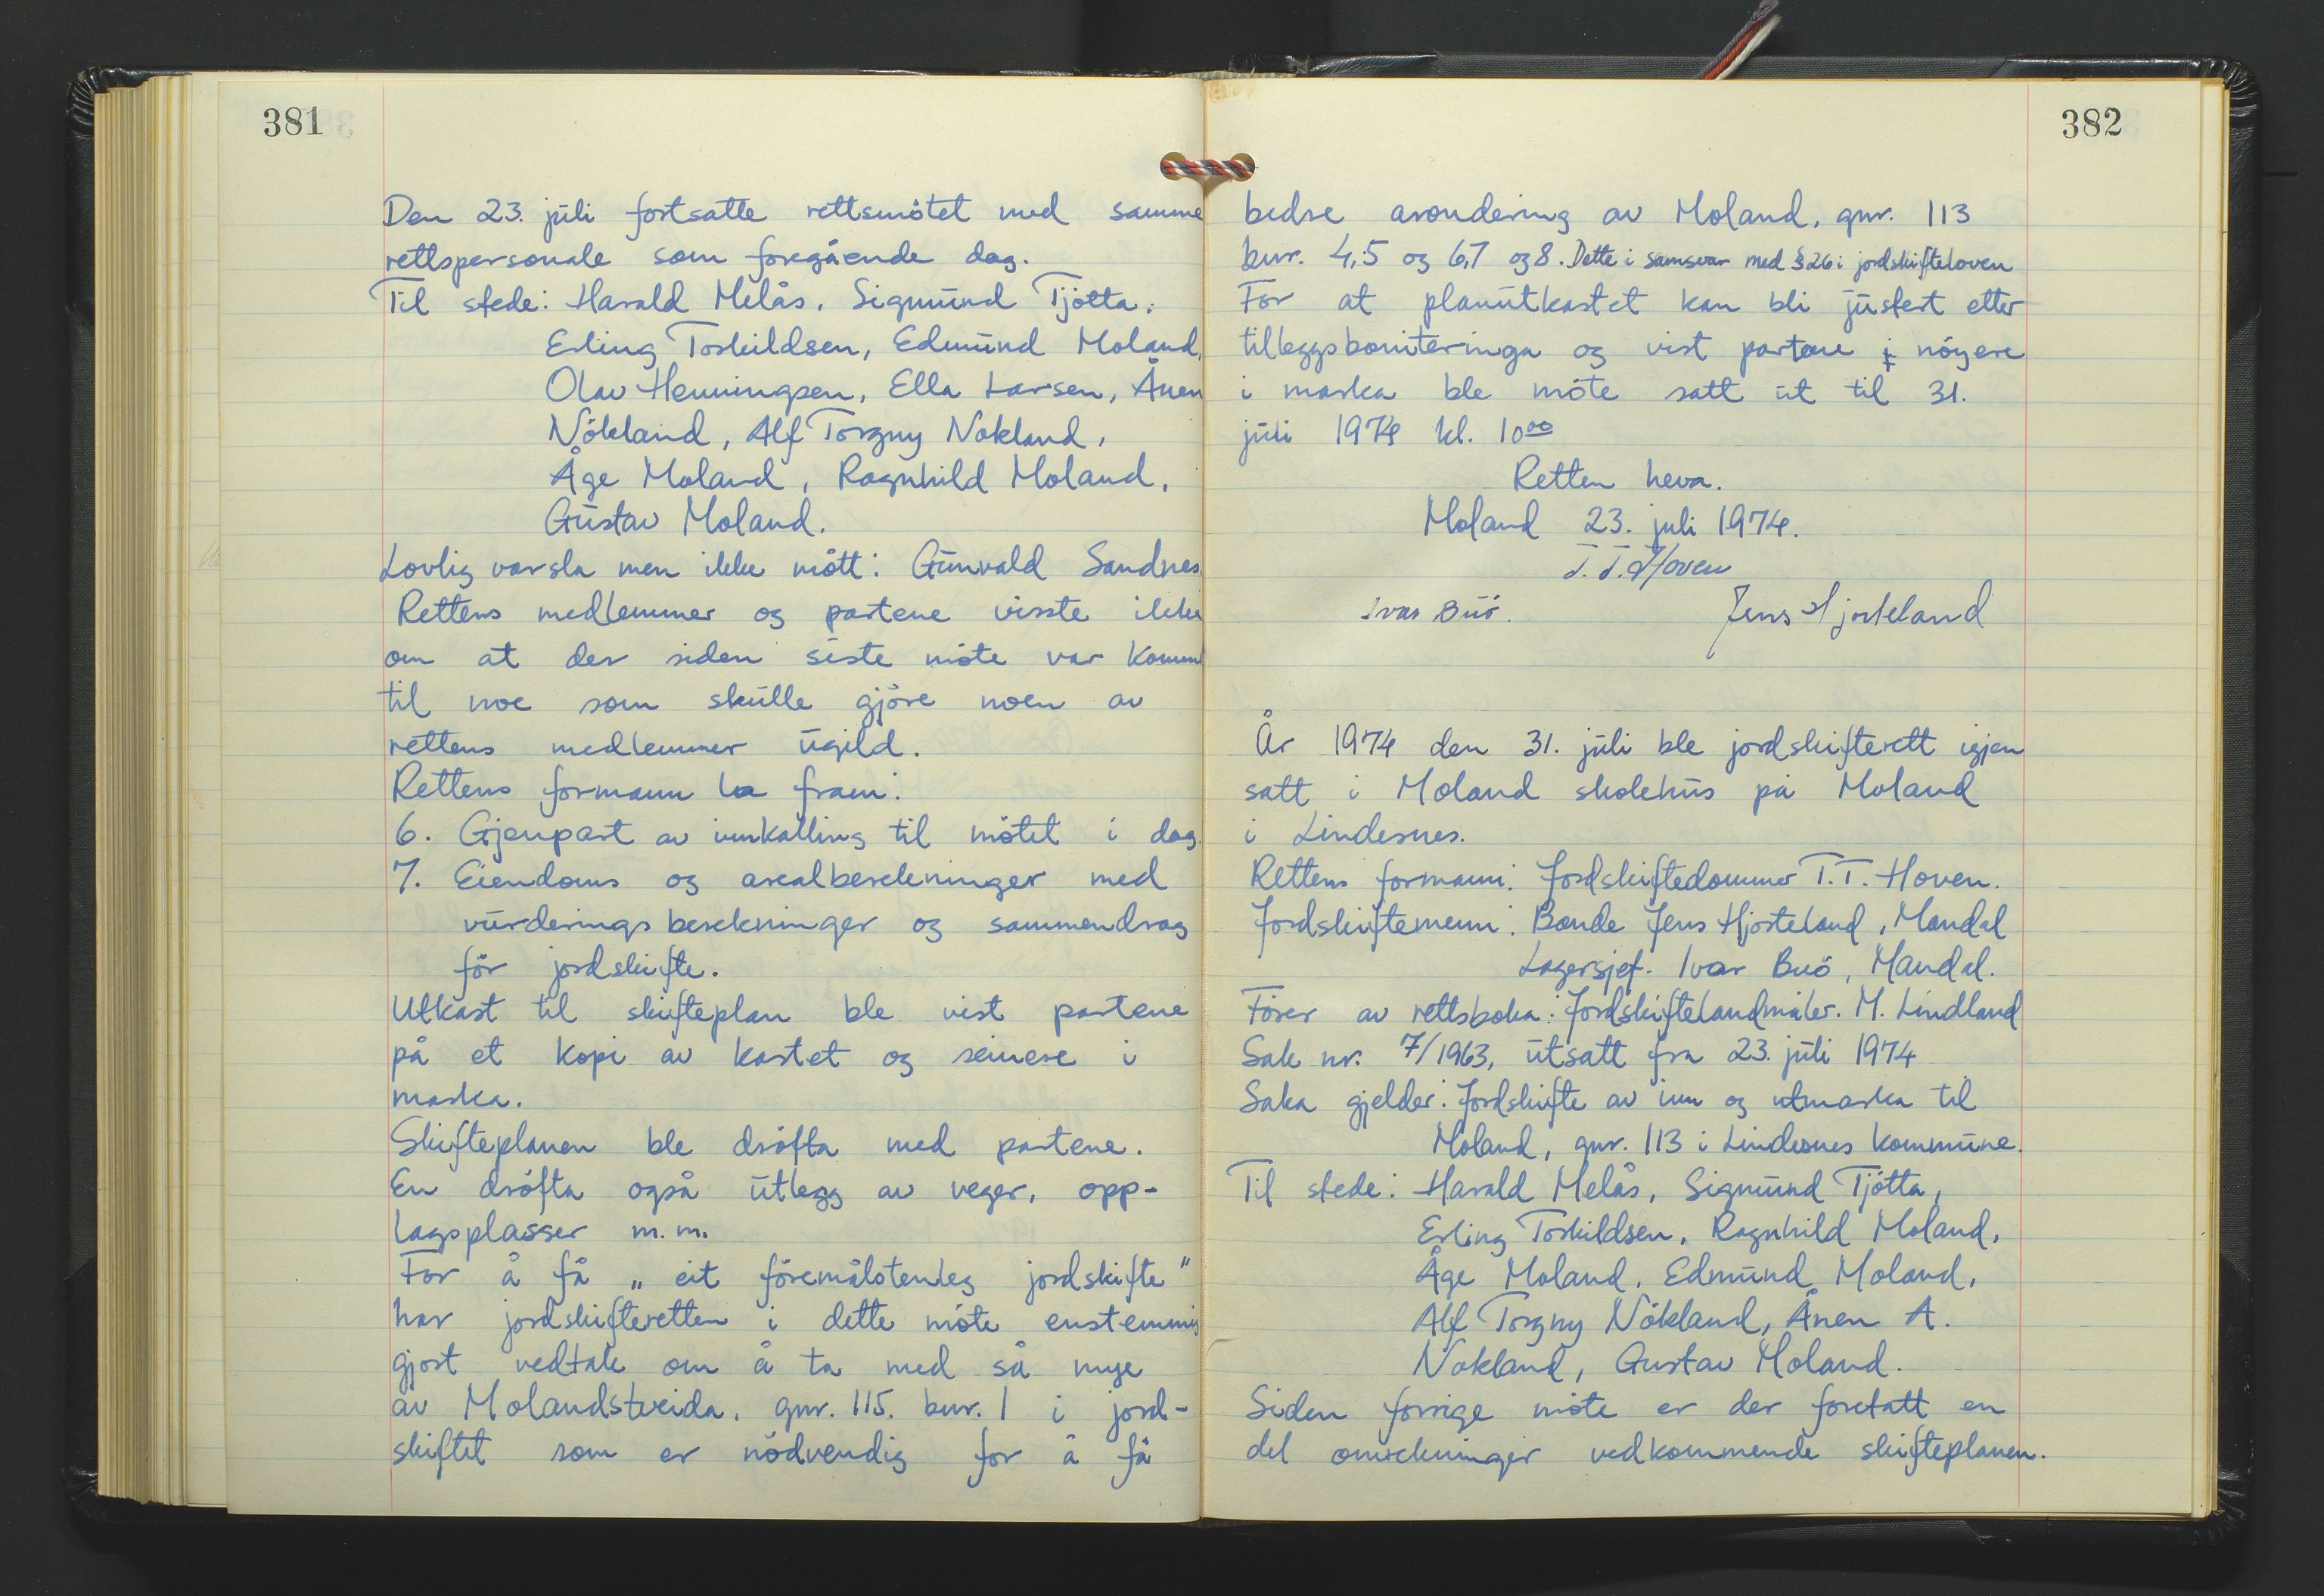 381
Den 23. juli fortsatte rettsmötet med samme
rettspersonale som foregående dag.
Til stede: Harald Melås, Sigmund Tjötta,
Erling Torkildsen, Edmund Moland,
Olav Henningsen, Ella Larsen, Ånen
Nökland, Alf Torgny Nökland,
Åge Moland, Ragnhild Moland,
Gustav Moland.
Lovlig varsla men ikke mött: Gunvald Sandnes
Rettens medlemmer og partene visste ikke
om at der siden siste möte var kommet
til noe som skulle gjöre noen av
rettens medlemmer ugild.
Rettens formann la fram:
6. Gjenpart av innkalling til mötet i dag.
7. Eiendoms og arealberekninger med
vurderingsberekninger og sammendrag
för jordskifte.
Utkast til skifteplan ble vist partene
på et kopi av kartet og seinere i
marka.
Skifteplanen ble dröfta med partene.
En dröfta også utlegg av veger, opp-
lagsplasser m.m.
For å få „eit föremålstenleg jordskifte"
har jordskifteretten i dette möte enstemmig
gjort vedtak om å ta med så mye
av Molandsveida, gnr. 115. bnr. 1 i jord-
skiftet som er nödvendig for å få
382
bedre arondering av Moland, gnr. 113
bnr. 4,5 og 6,7 og 8. Dette i samsvar med § 26 i jordskifteloven
For at planutkastet kan bli justert etter
tilleggsboniteringa og vist partene i nöyere
i marka ble möte satt ut til 31.
juli 1974 kl. 10 00
Retten heva.
Moland 23. juli 1974.
T. T. Hoven
Ivar Buö. Jens Hjorteland
År 1974 den 31. juli ble jordskifterett igjen
satt i Moland skolehus på Moland
i Lindesnes.
Rettens formann: Jordskiftedommer T.T. Hoven.
Jordskiftemenn: Bonde Jens Hjorteland, Mandal
Lagersjef. Ivar Buö, Mandal.
Förer av rettsboka: Jordskiftelandmåler. M. Lindland
Sak nr. 7/1963, utsatt fra 23. juli 1974
Saka gjelder: Jordskifte av inn og utmarka til
Moland, gnr. 113 i Lindesnes kommune.
Til stede: Harald Melås, Sigmund Tjötta,
Erling Torkildsen, Ragnhild Moland,
Åge Moland, Edmund Moland,
Alf Torgny Nökland, Ånen A.
Nökland, Gustav Moland.
Siden forrige möte er der foretatt en
del omrekninger vedkommende skifteplanen.